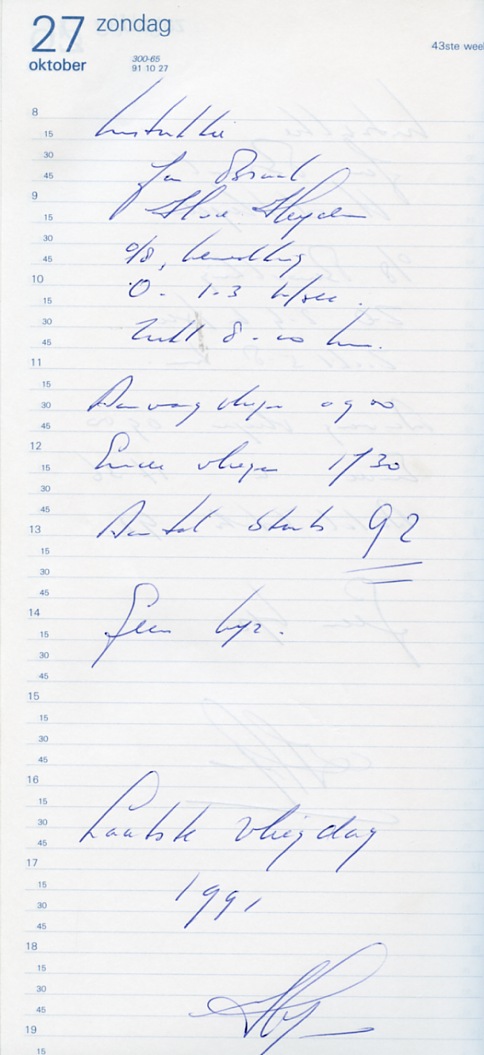 27 zondag
oktober
300-65
91 10 27
43ste week
8
15
Instruktie
30
45
Jan
9
15
30
8/8, bewolking
45
10
0 - 1-3 m/sec.
15
30
Zicht 8-10 km.
45
11
15
30
Aanvang vliegen 0900
45
12
15
Einde vliegen 1730
30
45
13
Aantal starts 92
15
30
45
14
15
Geen bijz.
30
45
15
15
30
45
16
15
30
Laatste vliegdag
45
17
15
30
1991
45
18
15
30
45
19
15